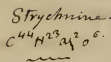 Strychnine.
C⁴⁴H²³Az²O⁶.